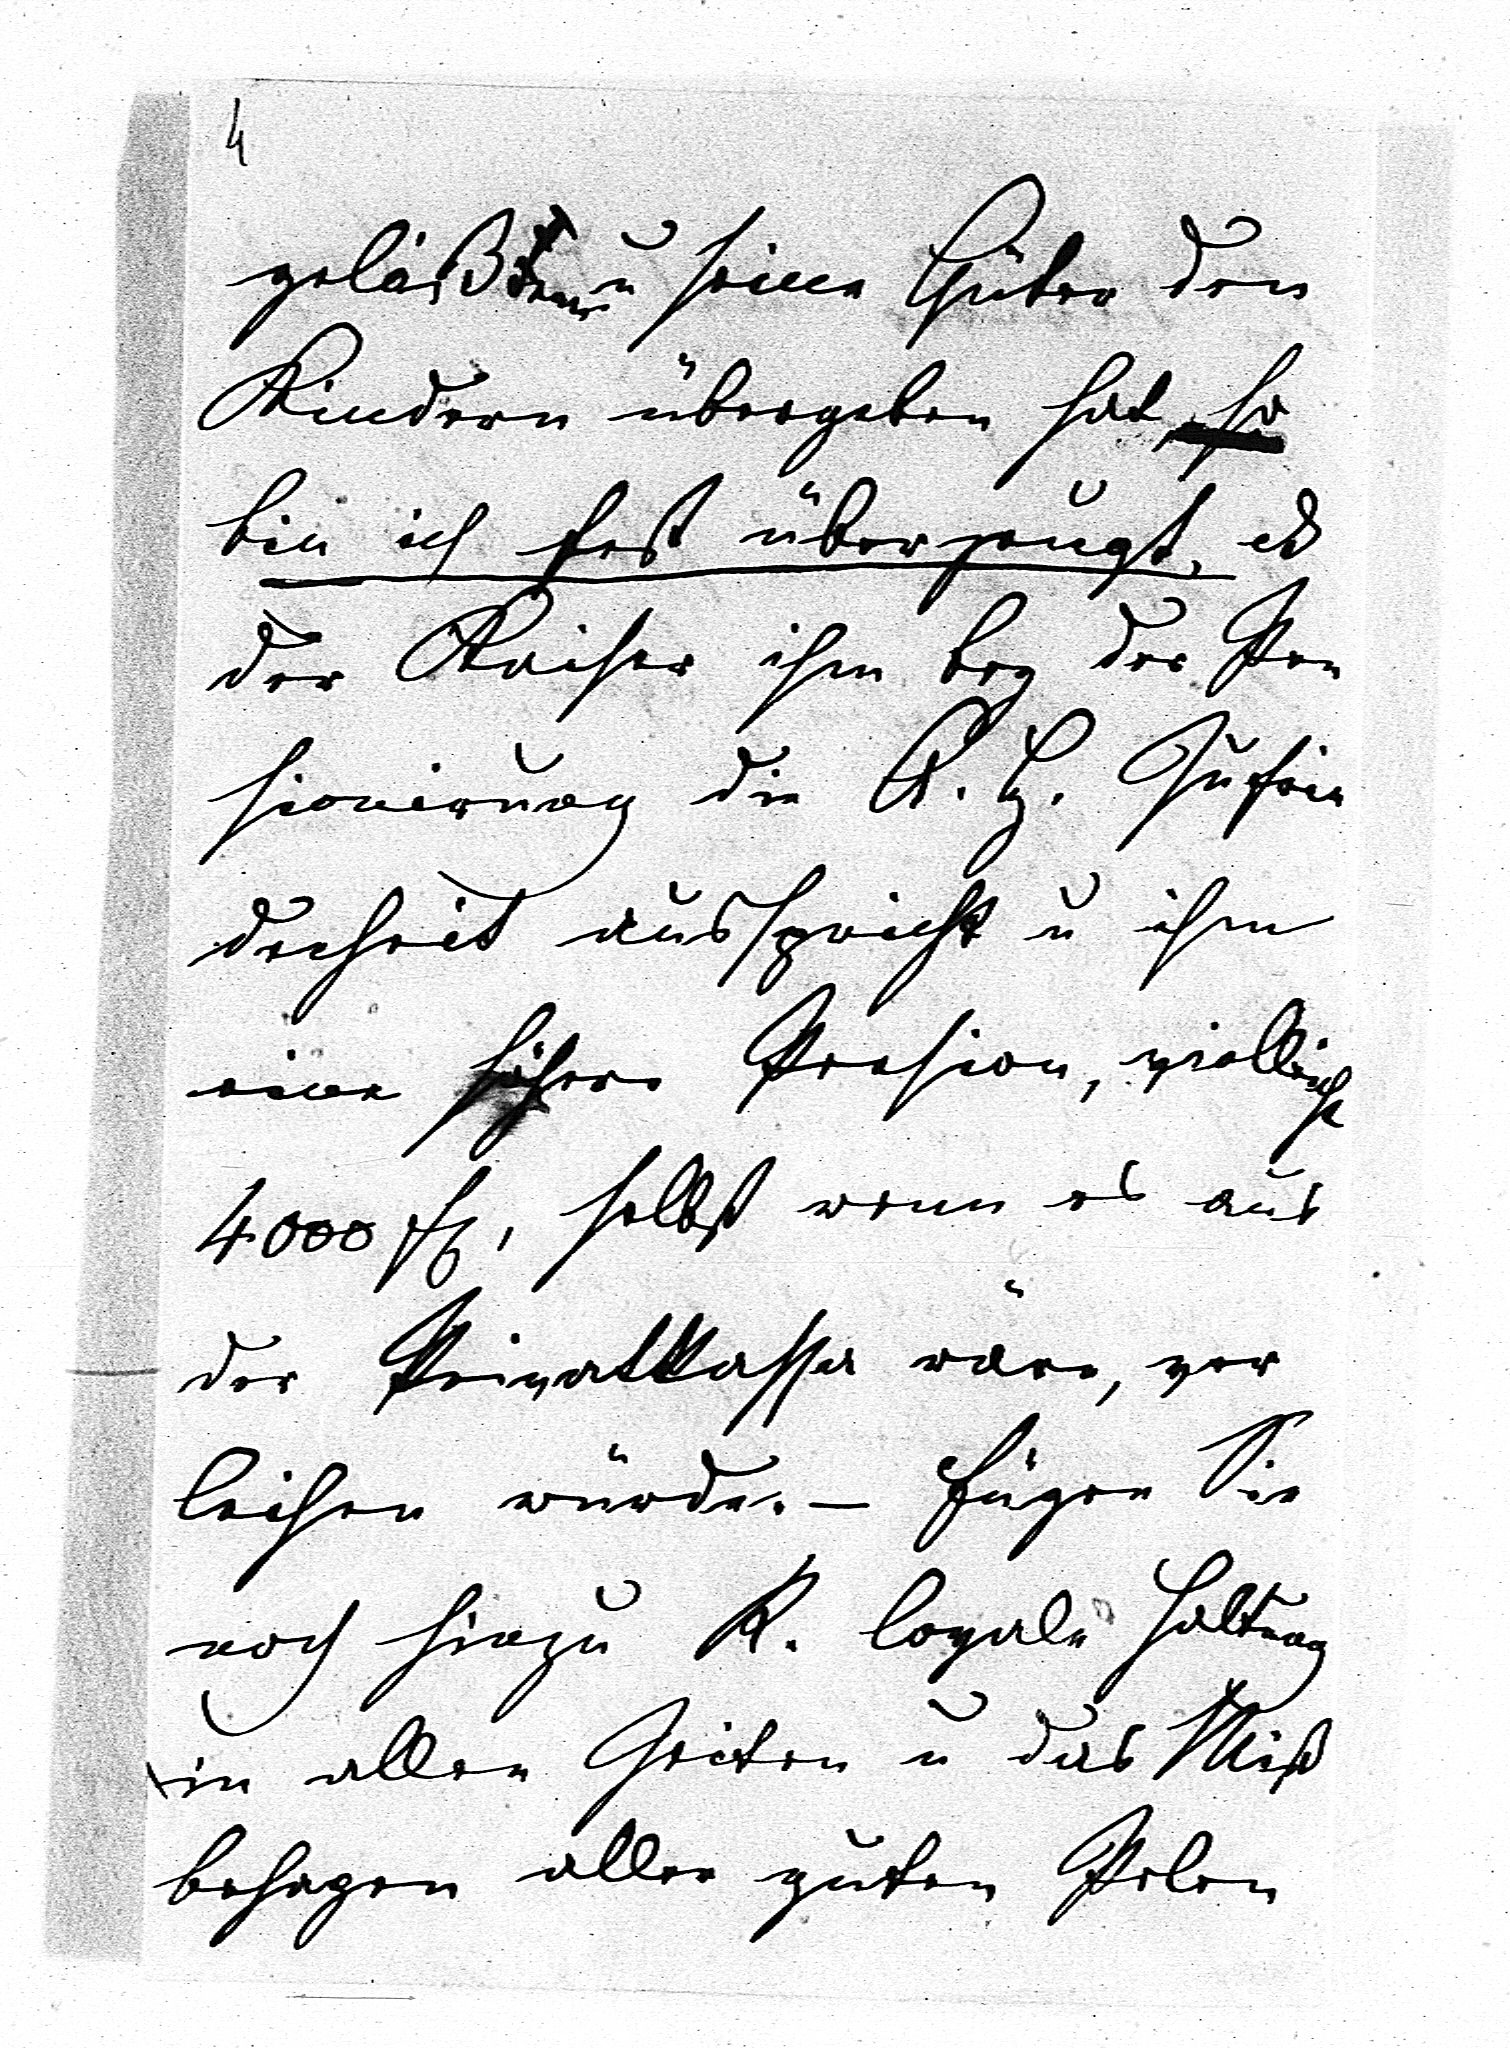 4
u seine Güter den
Kindern übergeben hat, so
bin ich fest überzeugt, dß
der Kaiser ihm bey der Pen
sionierung die A. H. Zufrie
denheit ausspricht u ihm
eine höhere Pension, vielleicht
4000 fl, selbst wenn es aus
der Privatkassa wäre, ver
leihen würde. – Fügen Sie
noch hinzu K. loyale Haltung
in allen Zeiten u das Miß
behagen aller guten Polen